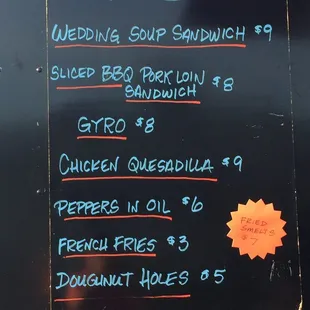 WEDDING SOUP SANDWICH $9
SLICED BBQ PORK LOIN
SANDWICH $8
GYRO $8
CHICKEN QUESADILLA $9
PEPPERS IN OIL $6
FRENCH FRIES $3
DOUGHNUT HOLES $5
FRIED
SMELTS
$7